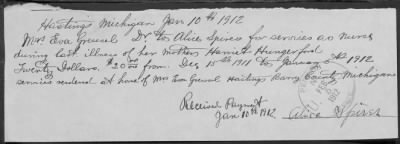 Hastings Michigan Jan 10th 1912
Mrs Eva Greusel Dr. to Alice Spires for services as nurse
during last illness of her mother Harriet Hungerford
Twenty Dollars. $20.00 from Dec 15th 1911 to January 2nd 1912
services rendered at home of Mrs Eva Greusel Hastings Barry County Michigan
Received Payment
Jan 10th 1912 Alice Spires